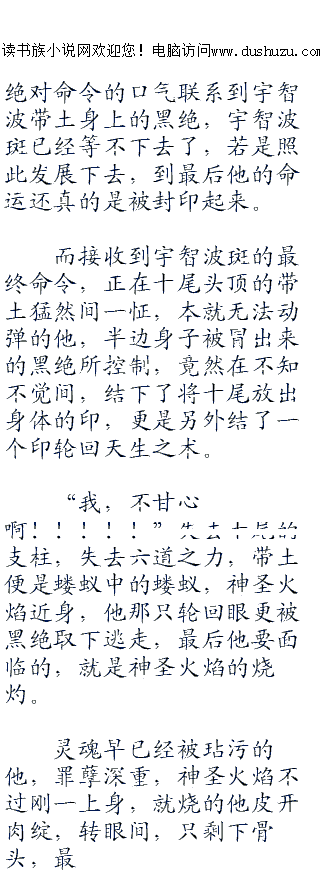 读书族小说网欢迎您！电脑访问www.dushuzu.com
绝对命令的口气联系到宇智
波带土身上的黑绝，宇智波
斑已经等不下去了，若是照
此发展下去，到最后他的命
运还真的是被封印起来。
而接收到宇智波斑的最
终命令，正在十尾头顶的带
土猛然间一怔，本就无法动
弹的他，半边身子被冒出来
的黑绝所控制，竟然在不知
不觉间，结下了将十尾放出
身体的印，更是另外结了一
个印轮回天生之术。
“我，不甘心
啊！！！！！”失去十尾的
支柱，失去六道之力，带土
便是蝼蚁中的蝼蚁，神圣火
焰近身，他那只轮回眼更被
黑绝取下逃走，最后他要面
临的，就是神圣火焰的烧
灼。
灵魂早已经被玷污的
他，罪孽深重，神圣火焰不
过刚一上身，就烧的他皮开
肉绽，转眼间，只剩下骨
头，最